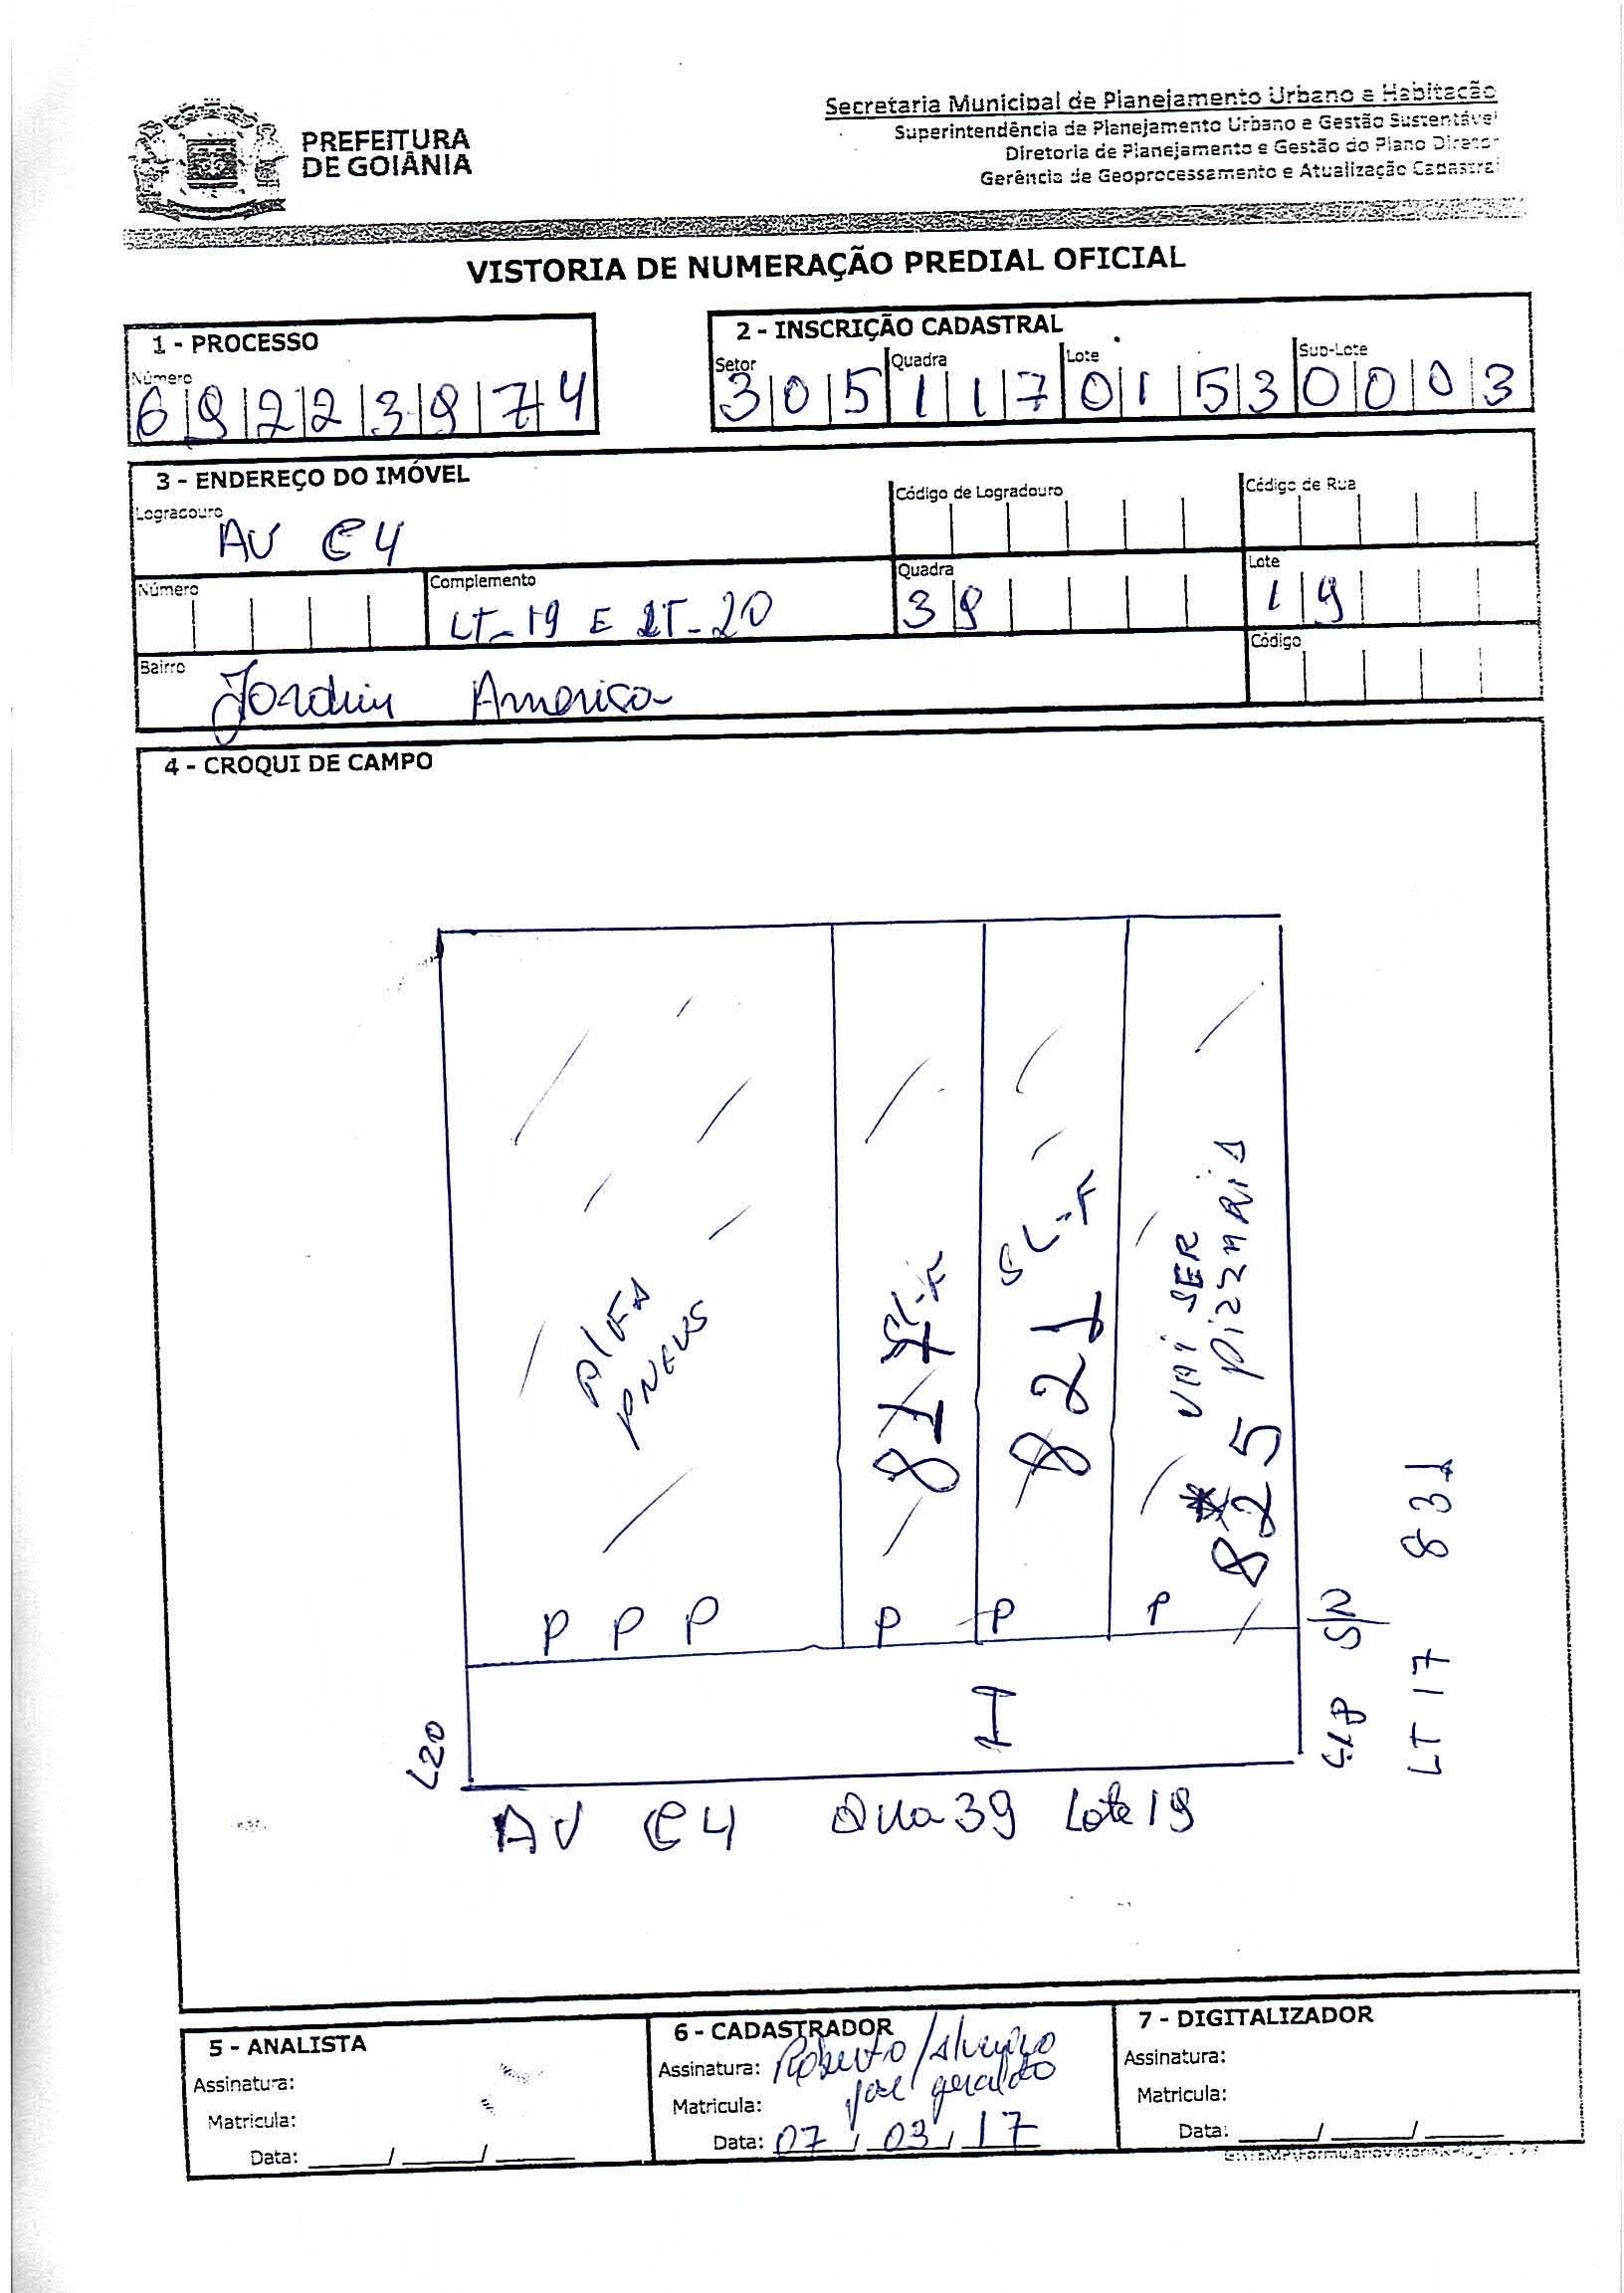 PREFEITURA
DE GOIÂNIA
Secretaria Municipal de Planejamento Urbano e Habitação
Superintendência de Planejamento Urbano e Gestão Sustentável
Diretoria de Planejamento e Gestão do Plano Diretor
Gerência de Geoprocessamento e Atualização Cadastral
VISTORIA DE NUMERAÇÃO PREDIAL OFICIAL
1 - PROCESSO
Número
69223974
2 - INSCRIÇÃO CADASTRAL
Setor Quadra Lote Sub-Lote
305 117 0153 0003
3 - ENDEREÇO DO IMÓVEL
Logradouro Código de Logradouro Código de Rua
AV C4
Número Complemento Quadra Lote
LT-19 E LT-20 39 19
Bairro Código
Jardim America
4 - CROQUI DE CAMPO
PNEUS
817 SL-F
821 SL-F
VAI SER
PIZZARIA
825
P P P P P P
I
L20
L18 SN
LT 17 831
AV C4 Qua 39 Lote 19
5 - ANALISTA
Assinatura:
Matricula:
Data: / /
6 - CADASTRADOR
Assinatura: Roberto /
José geraldo
Matricula:
Data: 07 / 03 / 17
7 - DIGITALIZADOR
Assinatura:
Matricula:
Data: / /